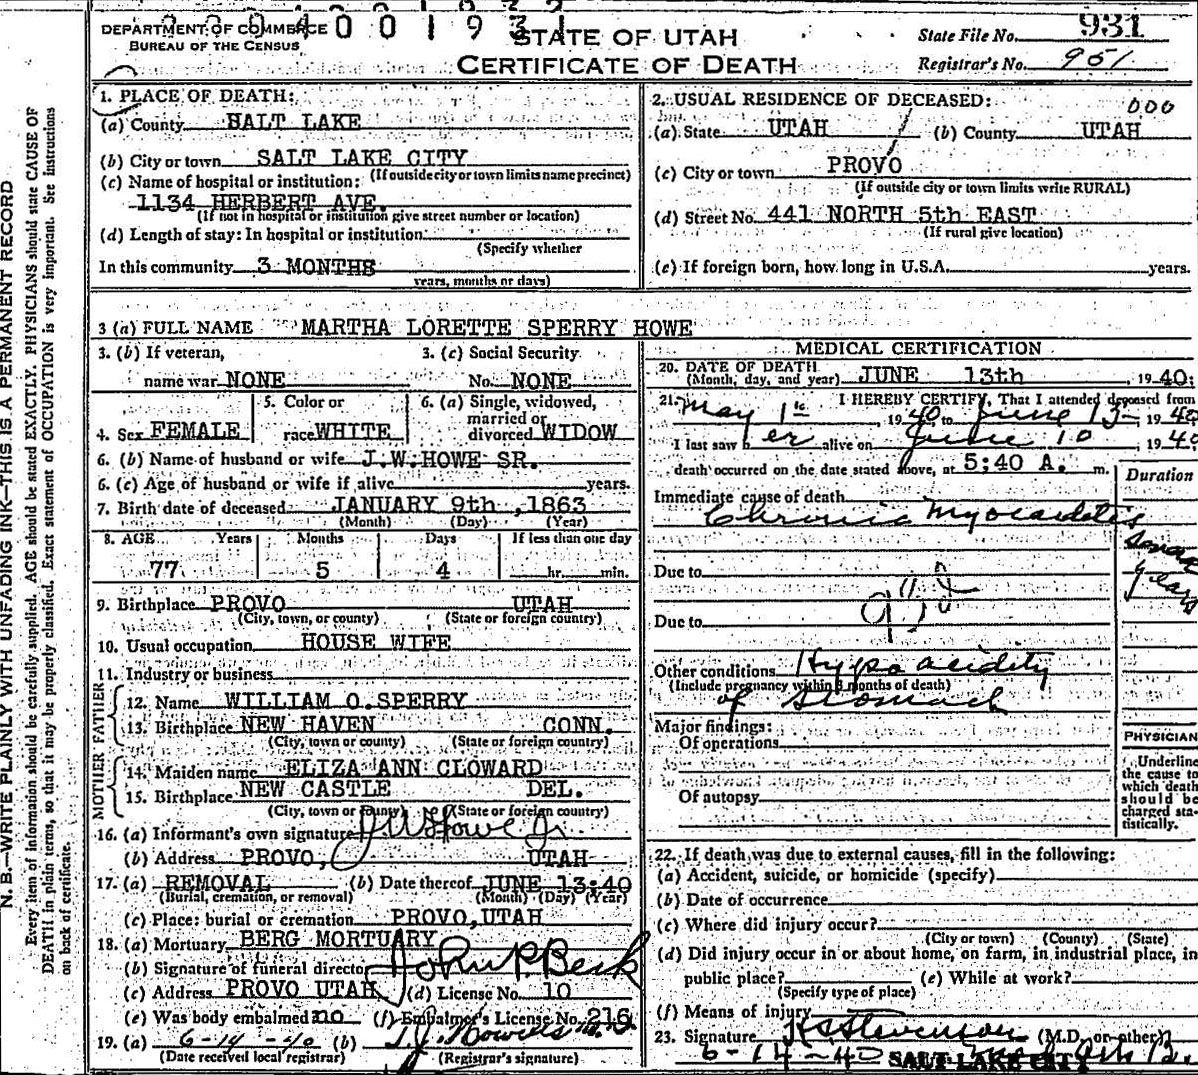 DEPARTMENT OF COMMERCE
BUREAU OF THE CENSUS
STATE OF UTAH
CERTIFICATE OF DEATH
State File No. 931
Registrar's No. 951
1. PLACE OF DEATH:
(a) County SALT LAKE
(b) City or town SALT LAKE CITY
(If outside city or town limits name precinct)
(c) Name of hospital or institution:
1134 HERBERT AVE.
(If not in hospital or institution give street number or location)
(d) Length of stay: In hospital or institution
(Specify whether
In this community 3 MONTHS
years, months or days)
2. USUAL RESIDENCE OF DECEASED: 000
(a) State UTAH (b) County UTAH
(c) City or town PROVO
(If outside city or town limits write RURAL)
(d) Street No. 441 NORTH 5th EAST
(If rural give location)
(e) If foreign born, how long in U.S.A. years.
3 (a) FULL NAME MARTHA LORETTE SPERRY HOWE
3. (b) If veteran, name war NONE
3. (c) Social Security No. NONE
4. Sex FEMALE
5. Color or race WHITE
6. (a) Single, widowed, married or divorced WIDOW
6. (b) Name of husband or wife J.W. HOWE SR.
6. (c) Age of husband or wife if alive years.
7. Birth date of deceased JANUARY 9th, 1863
(Month) (Day) (Year)
8. AGE Years Months Days If less than one day
77 5 4 hr. min.
9. Birthplace PROVO UTAH
(City, town, or county) (State or foreign country)
10. Usual occupation HOUSE WIFE
11. Industry or business
FATHER
12. Name WILLIAM O. SPERRY
13. Birthplace NEW HAVEN CONN.
(City, town or county) (State or foreign country)
MOTHER
14. Maiden name ELIZA ANN CLOWARD
15. Birthplace NEW CASTLE DEL.
(City, town or county) (State or foreign country)
16. (a) Informant's own signature J W Howe Jr
(b) Address PROVO, UTAH
17. (a) REMOVAL (b) Date thereof JUNE 13:40
(Burial, cremation, or removal) (Month) (Day) (Year)
(c) Place: burial or cremation PROVO, UTAH
18. (a) Mortuary BERG MORTUARY
(b) Signature of funeral director
(c) Address PROVO UTAH (d) License No. 10
(e) Was body embalmed no (f) Embalmer's License No. 216
19. (a) 6-14-40 (b)
(Date received local registrar) (Registrar's signature)
MEDICAL CERTIFICATION
20. DATE OF DEATH
(Month, day, and year) JUNE 13th, 1940:
21. I HEREBY CERTIFY, That I attended deceased from
May 1st 1940 to June 13 1940
I last saw her alive on June 10 1940
death occurred on the date stated above, at 5:40 A. m.
Duration
Immediate cause of death
Chronic Myocarditis
Several years
Due to
Due to
Other conditions Hypo acidity
(Include pregnancy within 3 months of death)
of Stomach
Major findings:
Of operations
Of autopsy
PHYSICIAN
Underline the cause to which death should be charged statistically.
22. If death was due to external causes, fill in the following:
(a) Accident, suicide, or homicide (specify)
(b) Date of occurrence
(c) Where did injury occur?
(City or town) (County) (State)
(d) Did injury occur in or about home, on farm, in industrial place, in
public place? (e) While at work?
(Specify type of place)
(f) Means of injury
23. Signature Stevenson (M.D. or other)
6-14-40 SALT LAKE CITY
N. B.—WRITE PLAINLY WITH UNFADING INK—THIS IS A PERMANENT RECORD
Every item of information should be carefully supplied. AGE should be stated EXACTLY. PHYSICIANS should state CAUSE OF
DEATH in plain terms, so that it may be properly classified. Exact statement of OCCUPATION is very important. See instructions
on back of certificate.